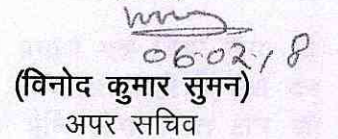 06.02.18
(विनोद कुमार सुमन)
अपर सचिव